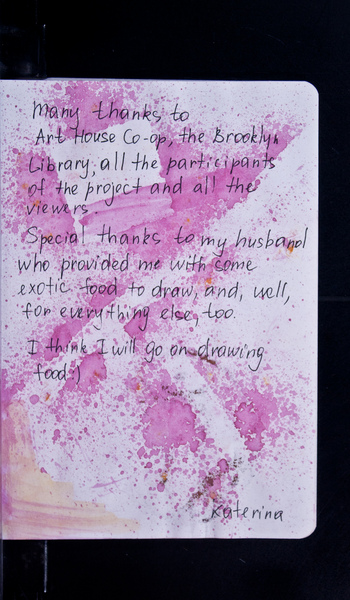 Many thanks to
Art House Co-op, the Brooklyn
Library, all the participants
of the project and all the
viewers.
Special thanks to my husband
who provided me with some
exotic food to draw, and, well,
for everything else, too.
I think I will go on drawing
food :)
Katerina